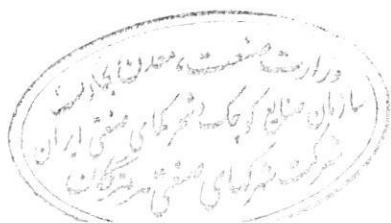 وزارت صنعت، معدن و تجارت
سازمان صنایع کوچک و شهرکهای صنعتی ایران
شرکت شهرکهای صنعتی هرمزگان